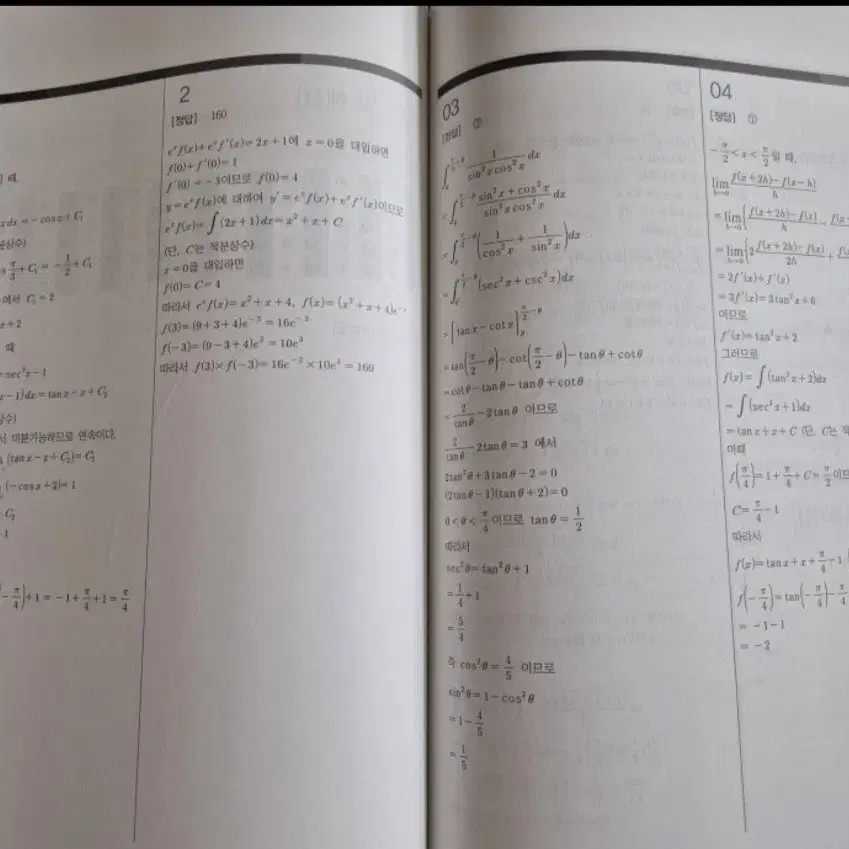 xdx = -cosx + C₁
π/3 + C₁ = -1/2 + C₁
에서 C₁ = 2
x+2
때
= sec²x - 1
x-1)dx = tanx - x + C₂
서 미분가능하므로 연속이다.
(tanx - x + C₂) = C₂
(-cosx + 2) = 1
C₂
-π/4) + 1 = -1 + π/4 + 1 = π/4
2
[정답] 160
eˣf(x) + eˣf'(x) = 2x + 1에 x = 0을 대입하면
f(0) + f'(0) = 1
f'(0) = -3이므로 f(0) = 4
y = eˣf(x)에 대하여 y' = eˣf(x) + eˣf'(x)이므로
eˣf(x) = ∫(2x+1)dx = x² + x + C
(단, C는 적분상수)
x = 0을 대입하면
f(0) = C = 4
따라서 eˣf(x) = x² + x + 4, f(x) = (x² + x + 4)e⁻
f(3) = (9+3+4)e⁻³ = 16e⁻³
f(-3) = (9-3+4)e³ = 10e³
따라서 f(3)×f(-3) = 16e⁻³ × 10e³ = 160
03
[정답]
∫ 1/(sin²x cos²x) dx
= ∫ (sin²x + cos²x)/(sin²x cos²x) dx
= ∫ (1/cos²x + 1/sin²x)dx
= ∫ (sec²x + csc²x)dx
= [tanx - cotx]
= tan(π/2 - θ) - cot(π/2 - θ) - tanθ + cotθ
= cotθ - tanθ - tanθ + cotθ
= 2/tanθ - 2tanθ 이므로
2/tanθ - 2tanθ = 3 에서
2tan²θ + 3tanθ - 2 = 0
(2tanθ - 1)(tanθ + 2) = 0
0 < θ < π/4 이므로 tanθ = 1/2
따라서
sec²θ = tan²θ + 1
= 1/4 + 1
= 5/4
즉 cos²θ = 4/5 이므로
sin²θ = 1 - cos²θ
= 1 - 4/5
= 1/5
04
[정답] ①
-π/2 < x < π/2일 때,
lim h→0 (f(x+2h) - f(x-h))/h
= lim h→0 {(f(x+2h) - f(x))/h -
= lim h→0 {2 (f(x+2h) - f(x))/2h +
= 2f'(x) + f'(x)
= 3f'(x) = 3tan²x + 6
이므로
f'(x) = tan²x + 2
그러므로
f(x) = ∫(tan²x + 2)dx
= ∫(sec²x + 1)dx
= tanx + x + C (단, C는 적
이때
f(π/4) = 1 + π/4 + C = π/2이므
C = π/4 - 1
따라서
f(x) = tanx + x + π/4 - 1
f(-π/4) = tan(-π/4) - π/4
= -1 - 1
= -2